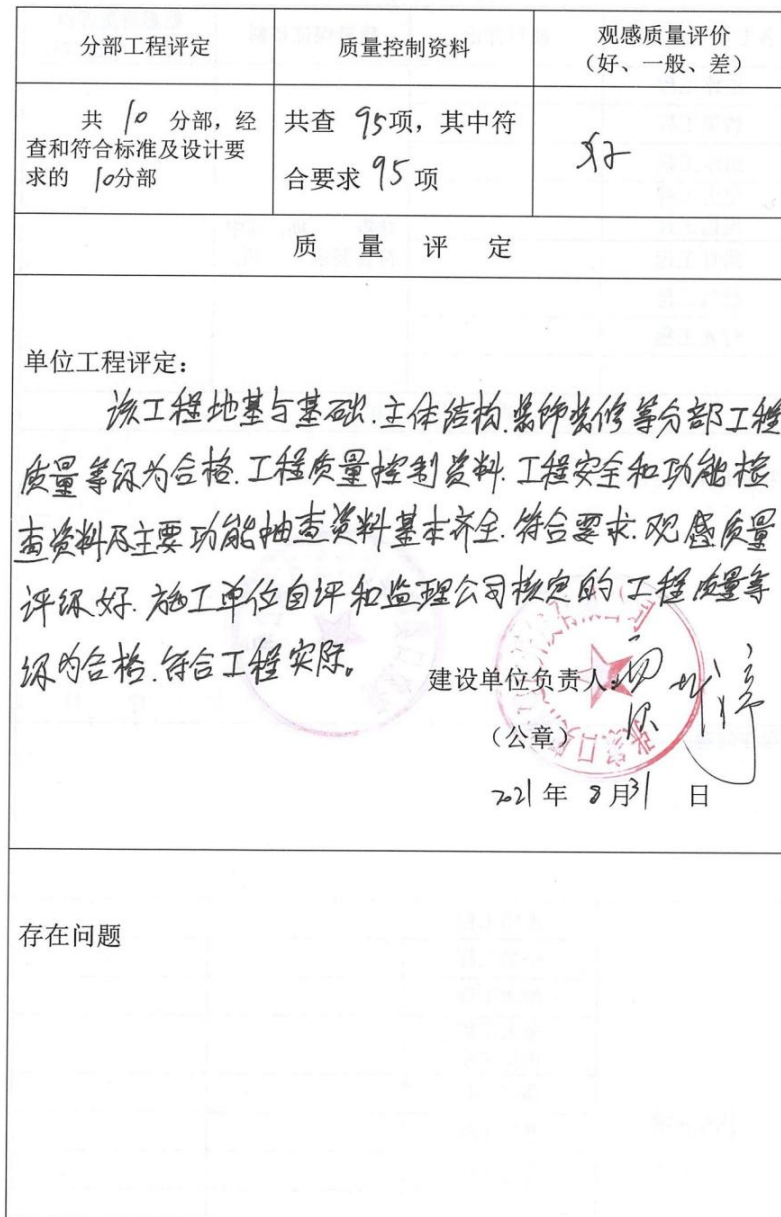 分部工程评定 质量控制资料 观感质量评价
（好、一般、差）
共 10 分部，经
查和符合标准及设计要
求的 10分部
共查 95项，其中符
合要求 95 项
好
质 量 评 定
单位工程评定：
该工程地基与基础.主体结构.装饰装修等分部工程
质量等级为合格.工程质量控制资料.工程安全和功能检
查资料及主要功能抽查资料基本齐全.符合要求.观感质量
评级好.施工单位自评和监理公司核定的工程质量等
级为合格.符合工程实际。
建设单位负责人：
（公章）
2021 年 8 月 31 日
存在问题